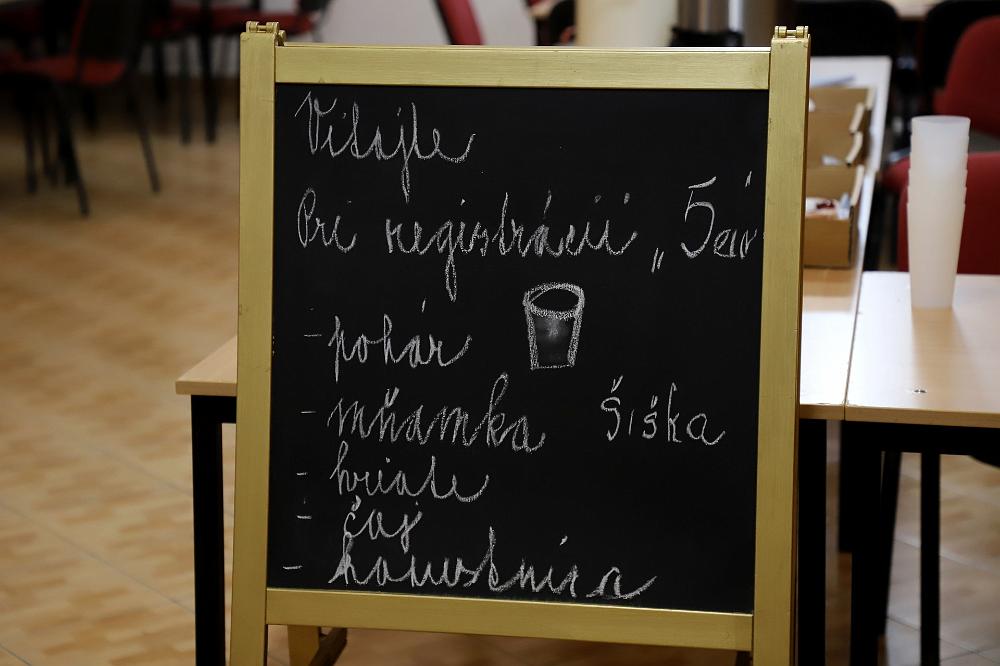 Vitajte
Pri registrácií „ 5eur
- pohár
- mňamka šiška
- hriate
- čaj
- kapustnica